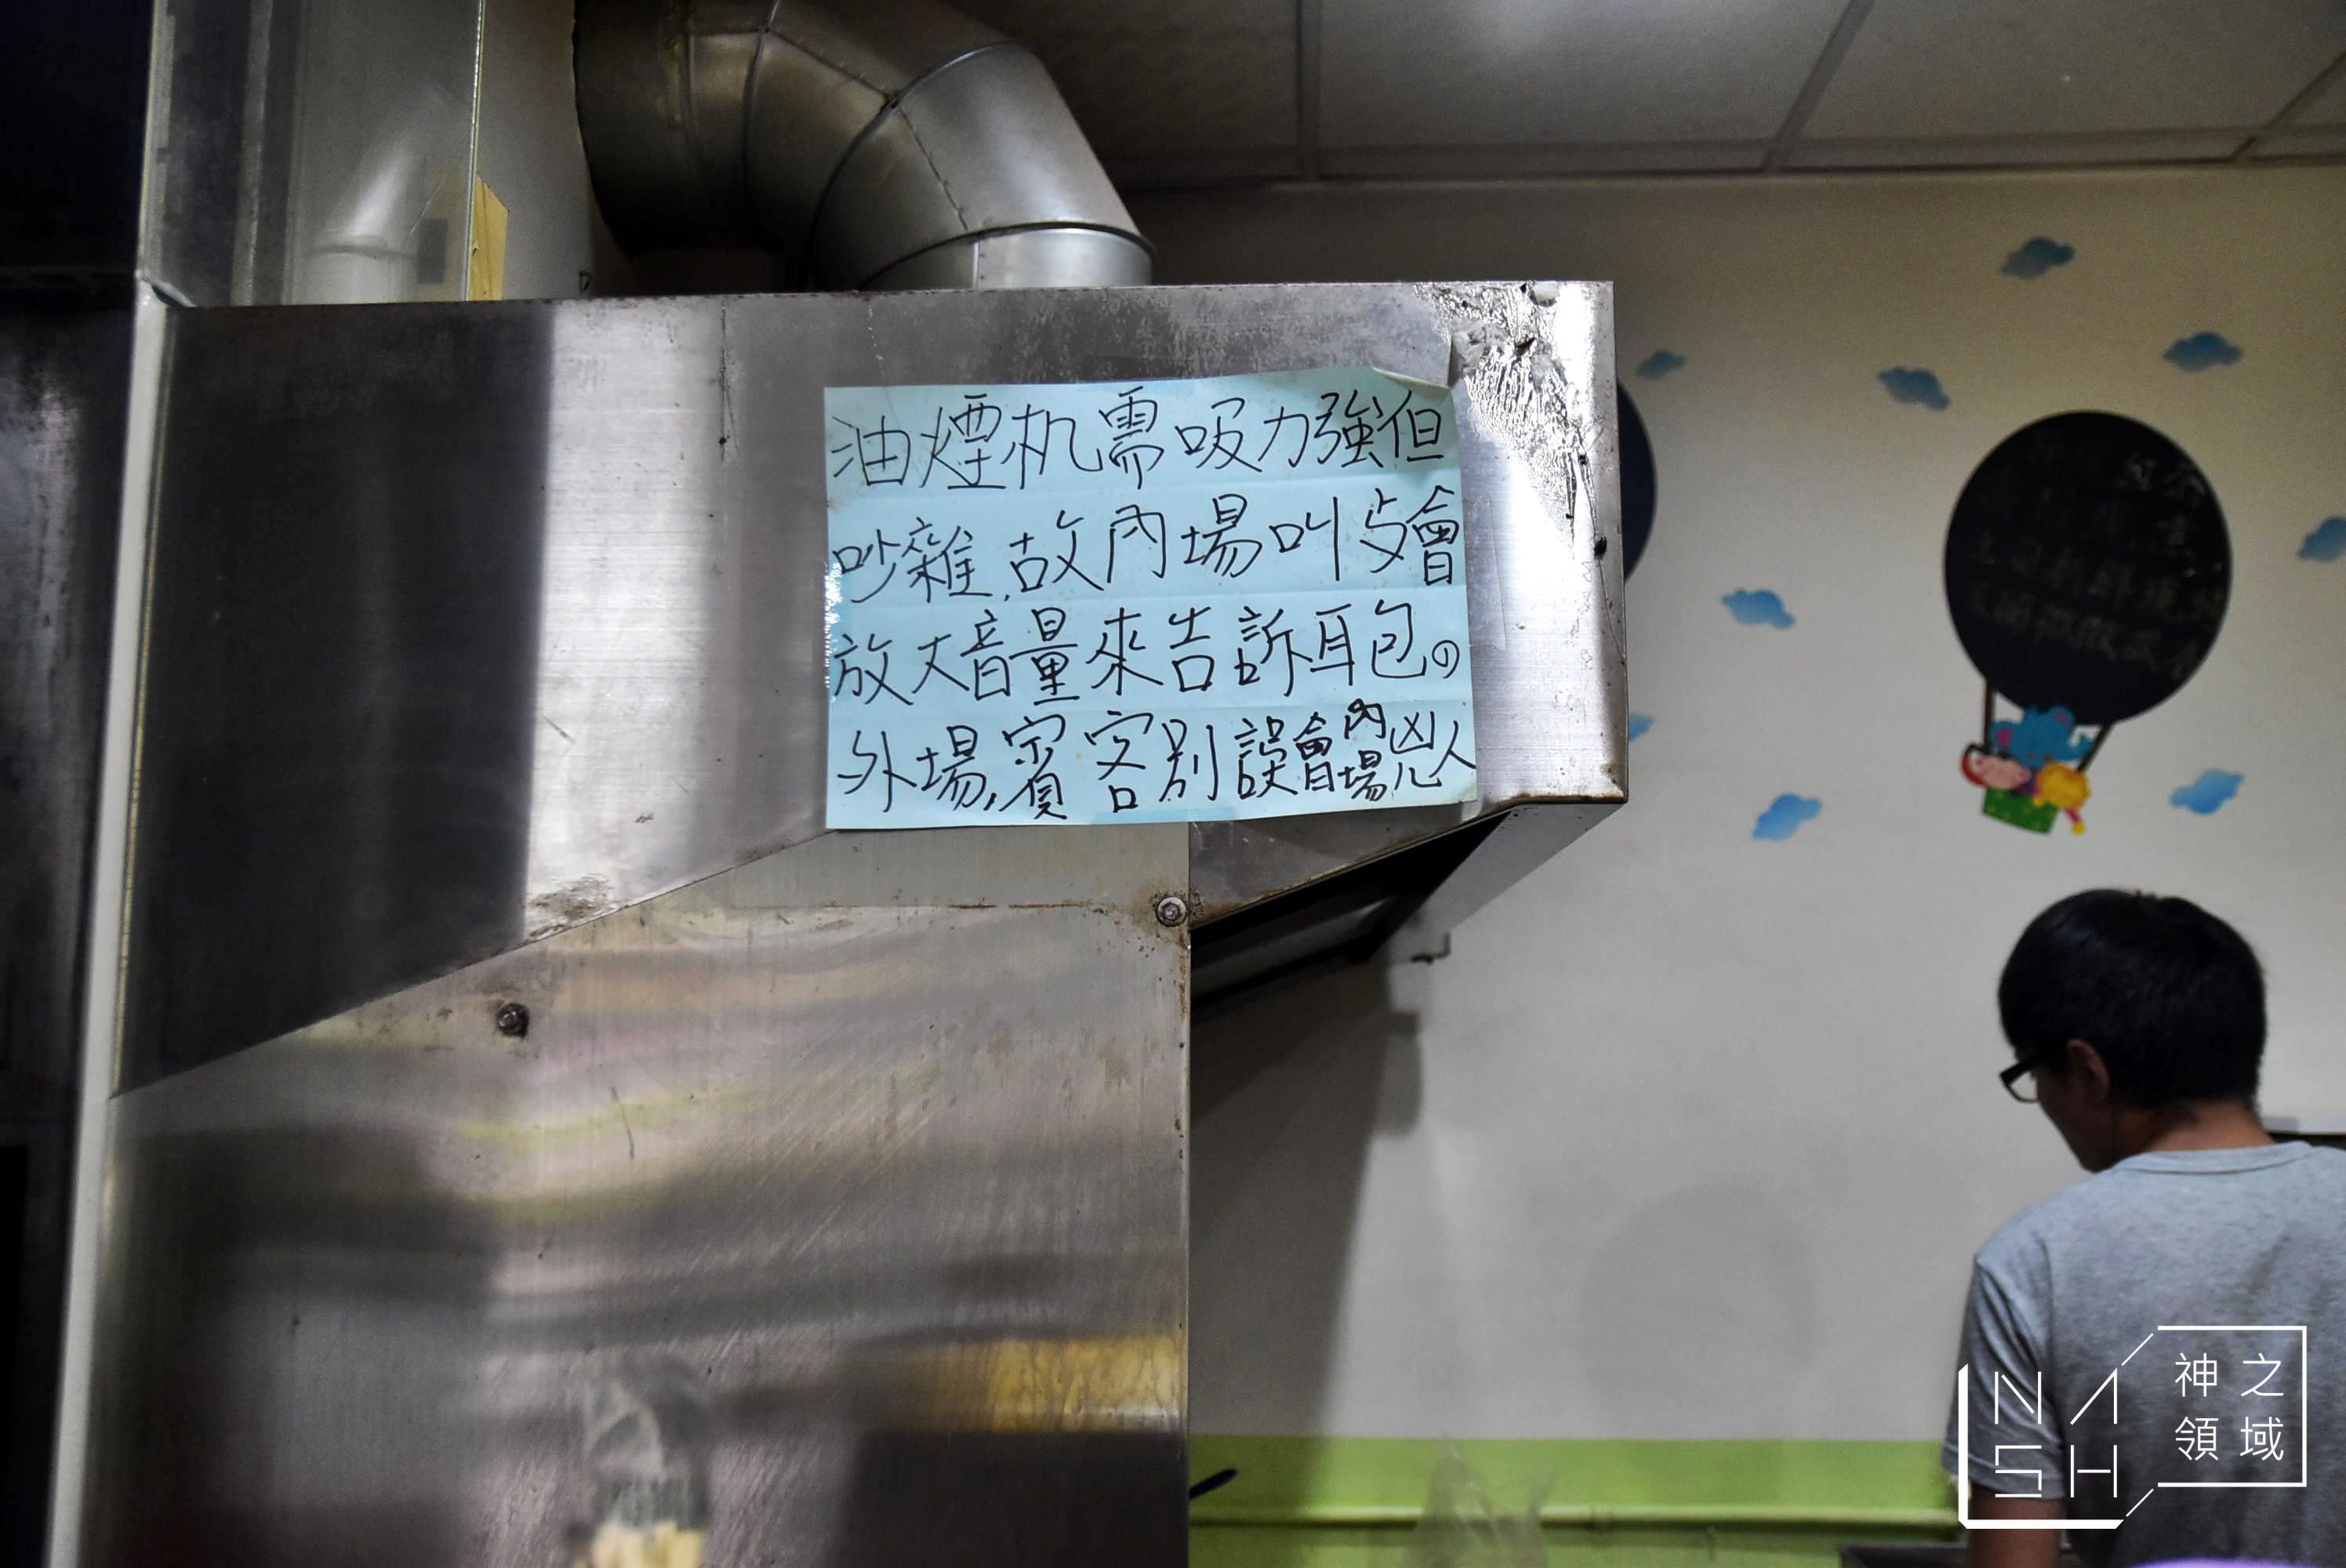 油煙机需吸力強但
吵雜,故內場叫号會
放大音量來告訴耳包の
外場,賓客別誤會內場兇人
NASH
神之
領域